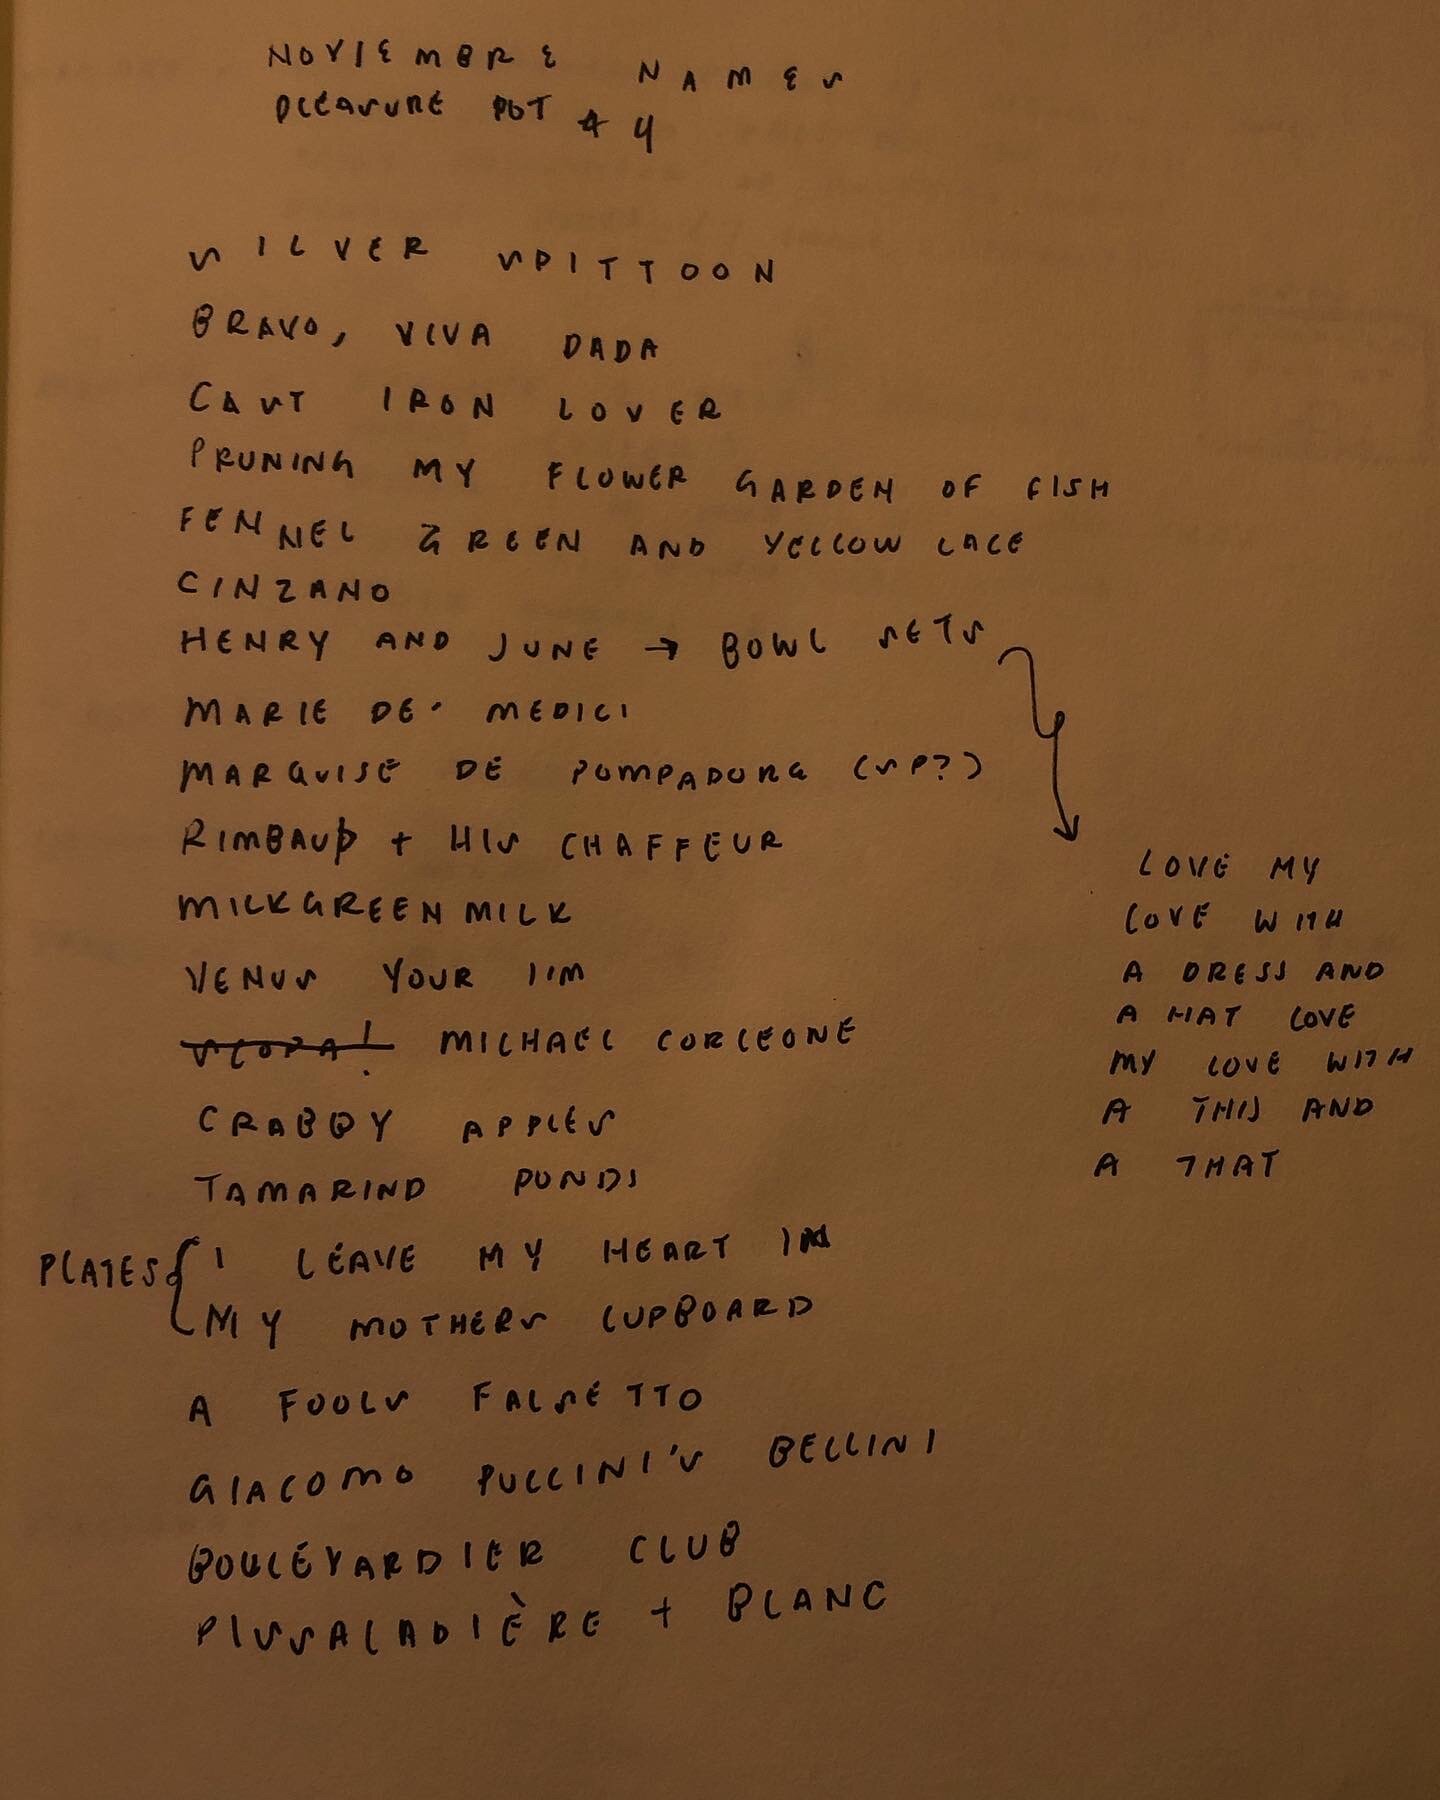 NOVIEMBRE NAMES
PLEASURE POT #4
SILVER SPITTOON
BRAVO, VIVA DADA
CAST IRON LOVER
PRUNING MY FLOWER GARDEN OF FISH
FENNEL GREEN AND YELLOW LACE
CINZANO
HENRY AND JUNE → BOWL SETS
MARIE DE' MEDICI
MARQUISE DE POMPADORE (SP?)
RIMBAUD + HIS CHAFFEUR
MILKGREENMILK
VENUS YOUR I'IM
MICHAEL CORLEONE
CRABBY APPLES
TAMARIND PONDS
PLATES { I LEAVE MY HEART IN
MY MOTHERS CUPBOARD
A FOOLS FALSETTO
GIACOMO PUCCINI'S BELLINI
BOULEVARDIER CLUB
PISSALADIÈRE + BLANC
LOVE MY
LOVE WITH
A DRESS AND
A HAT LOVE
MY LOVE WITH
A THIS AND
A THAT